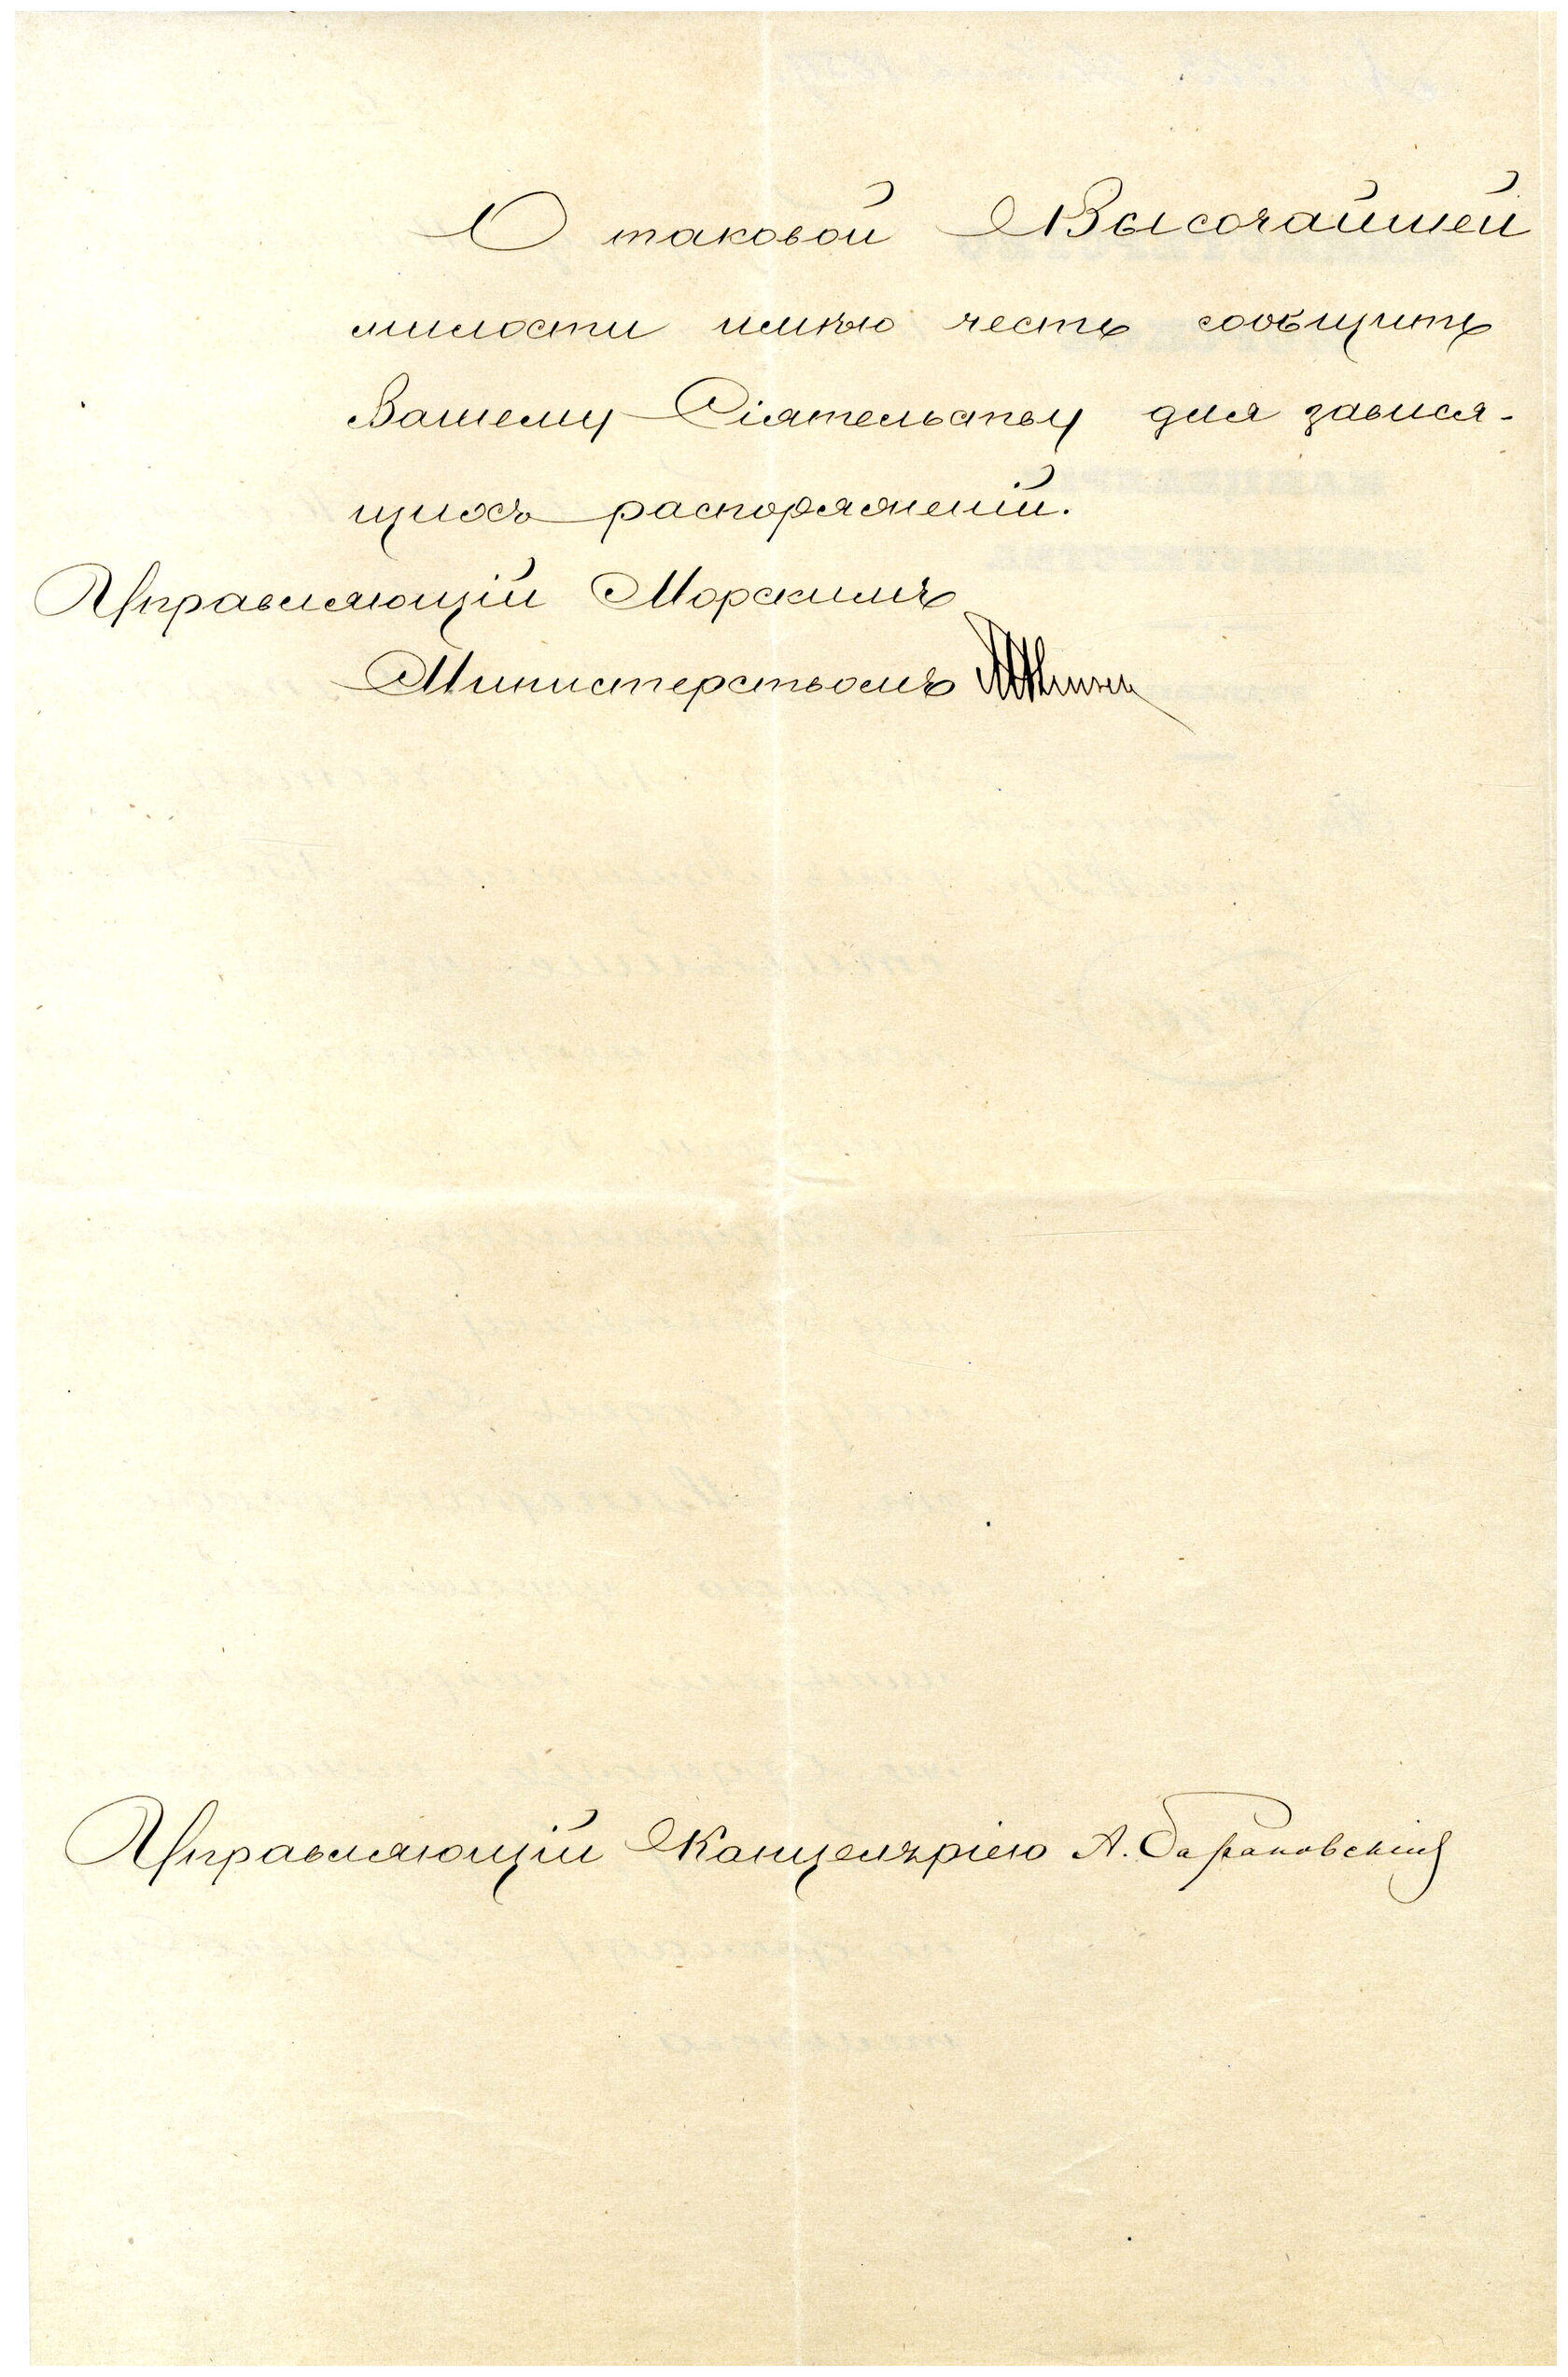 О таковой Высочайшей
милости имѣю честь сообщить
Вашему Сіятельству для завися-
щихъ распоряженій.
Управляющій Морскимъ
Министерствомъ
Управляющій Канцеляріею А. Барановскій